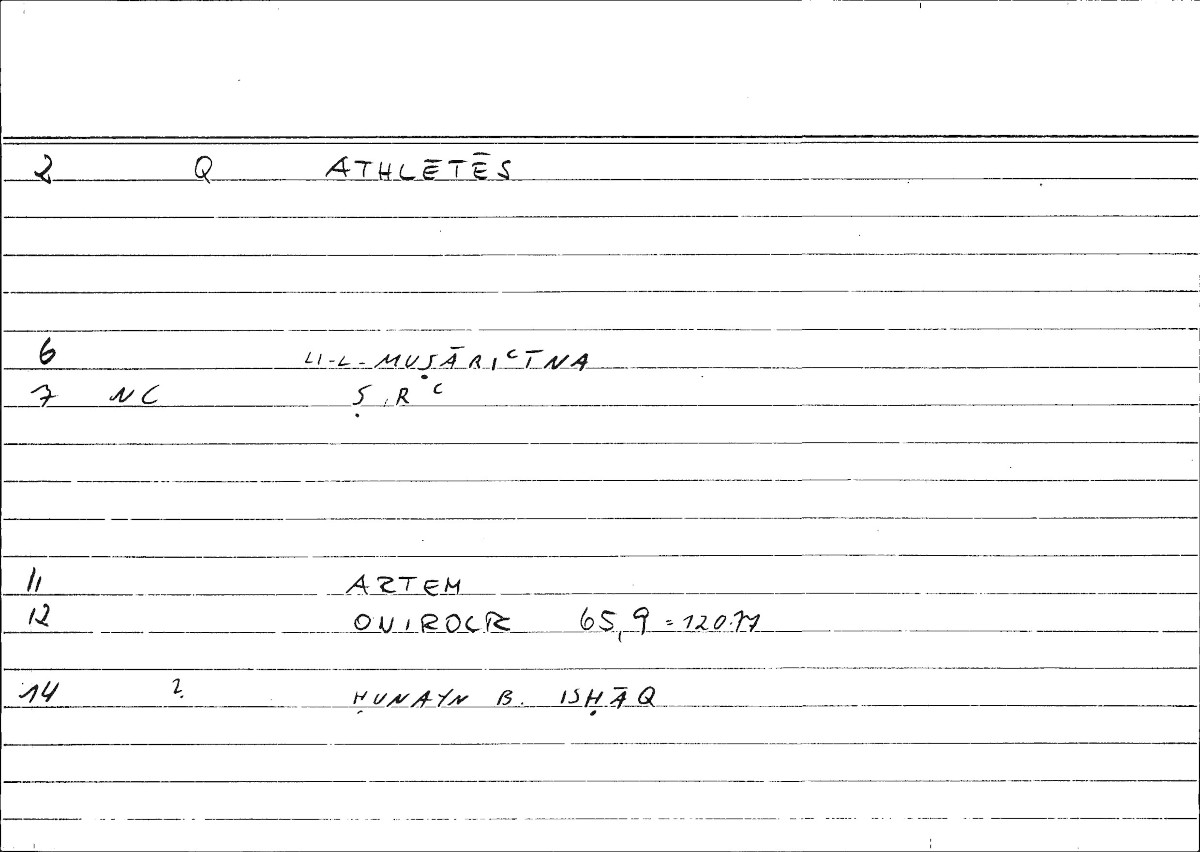 2 Q ATHLĒTĒS
6 LI-L-MUṢĀRIʿĪNA
7 NC Ṣ R ʿ
11 ARTEM
12 ONIROCR 65,9 = 120.77
14 ? ḤUNAYN B. ISḤĀQ